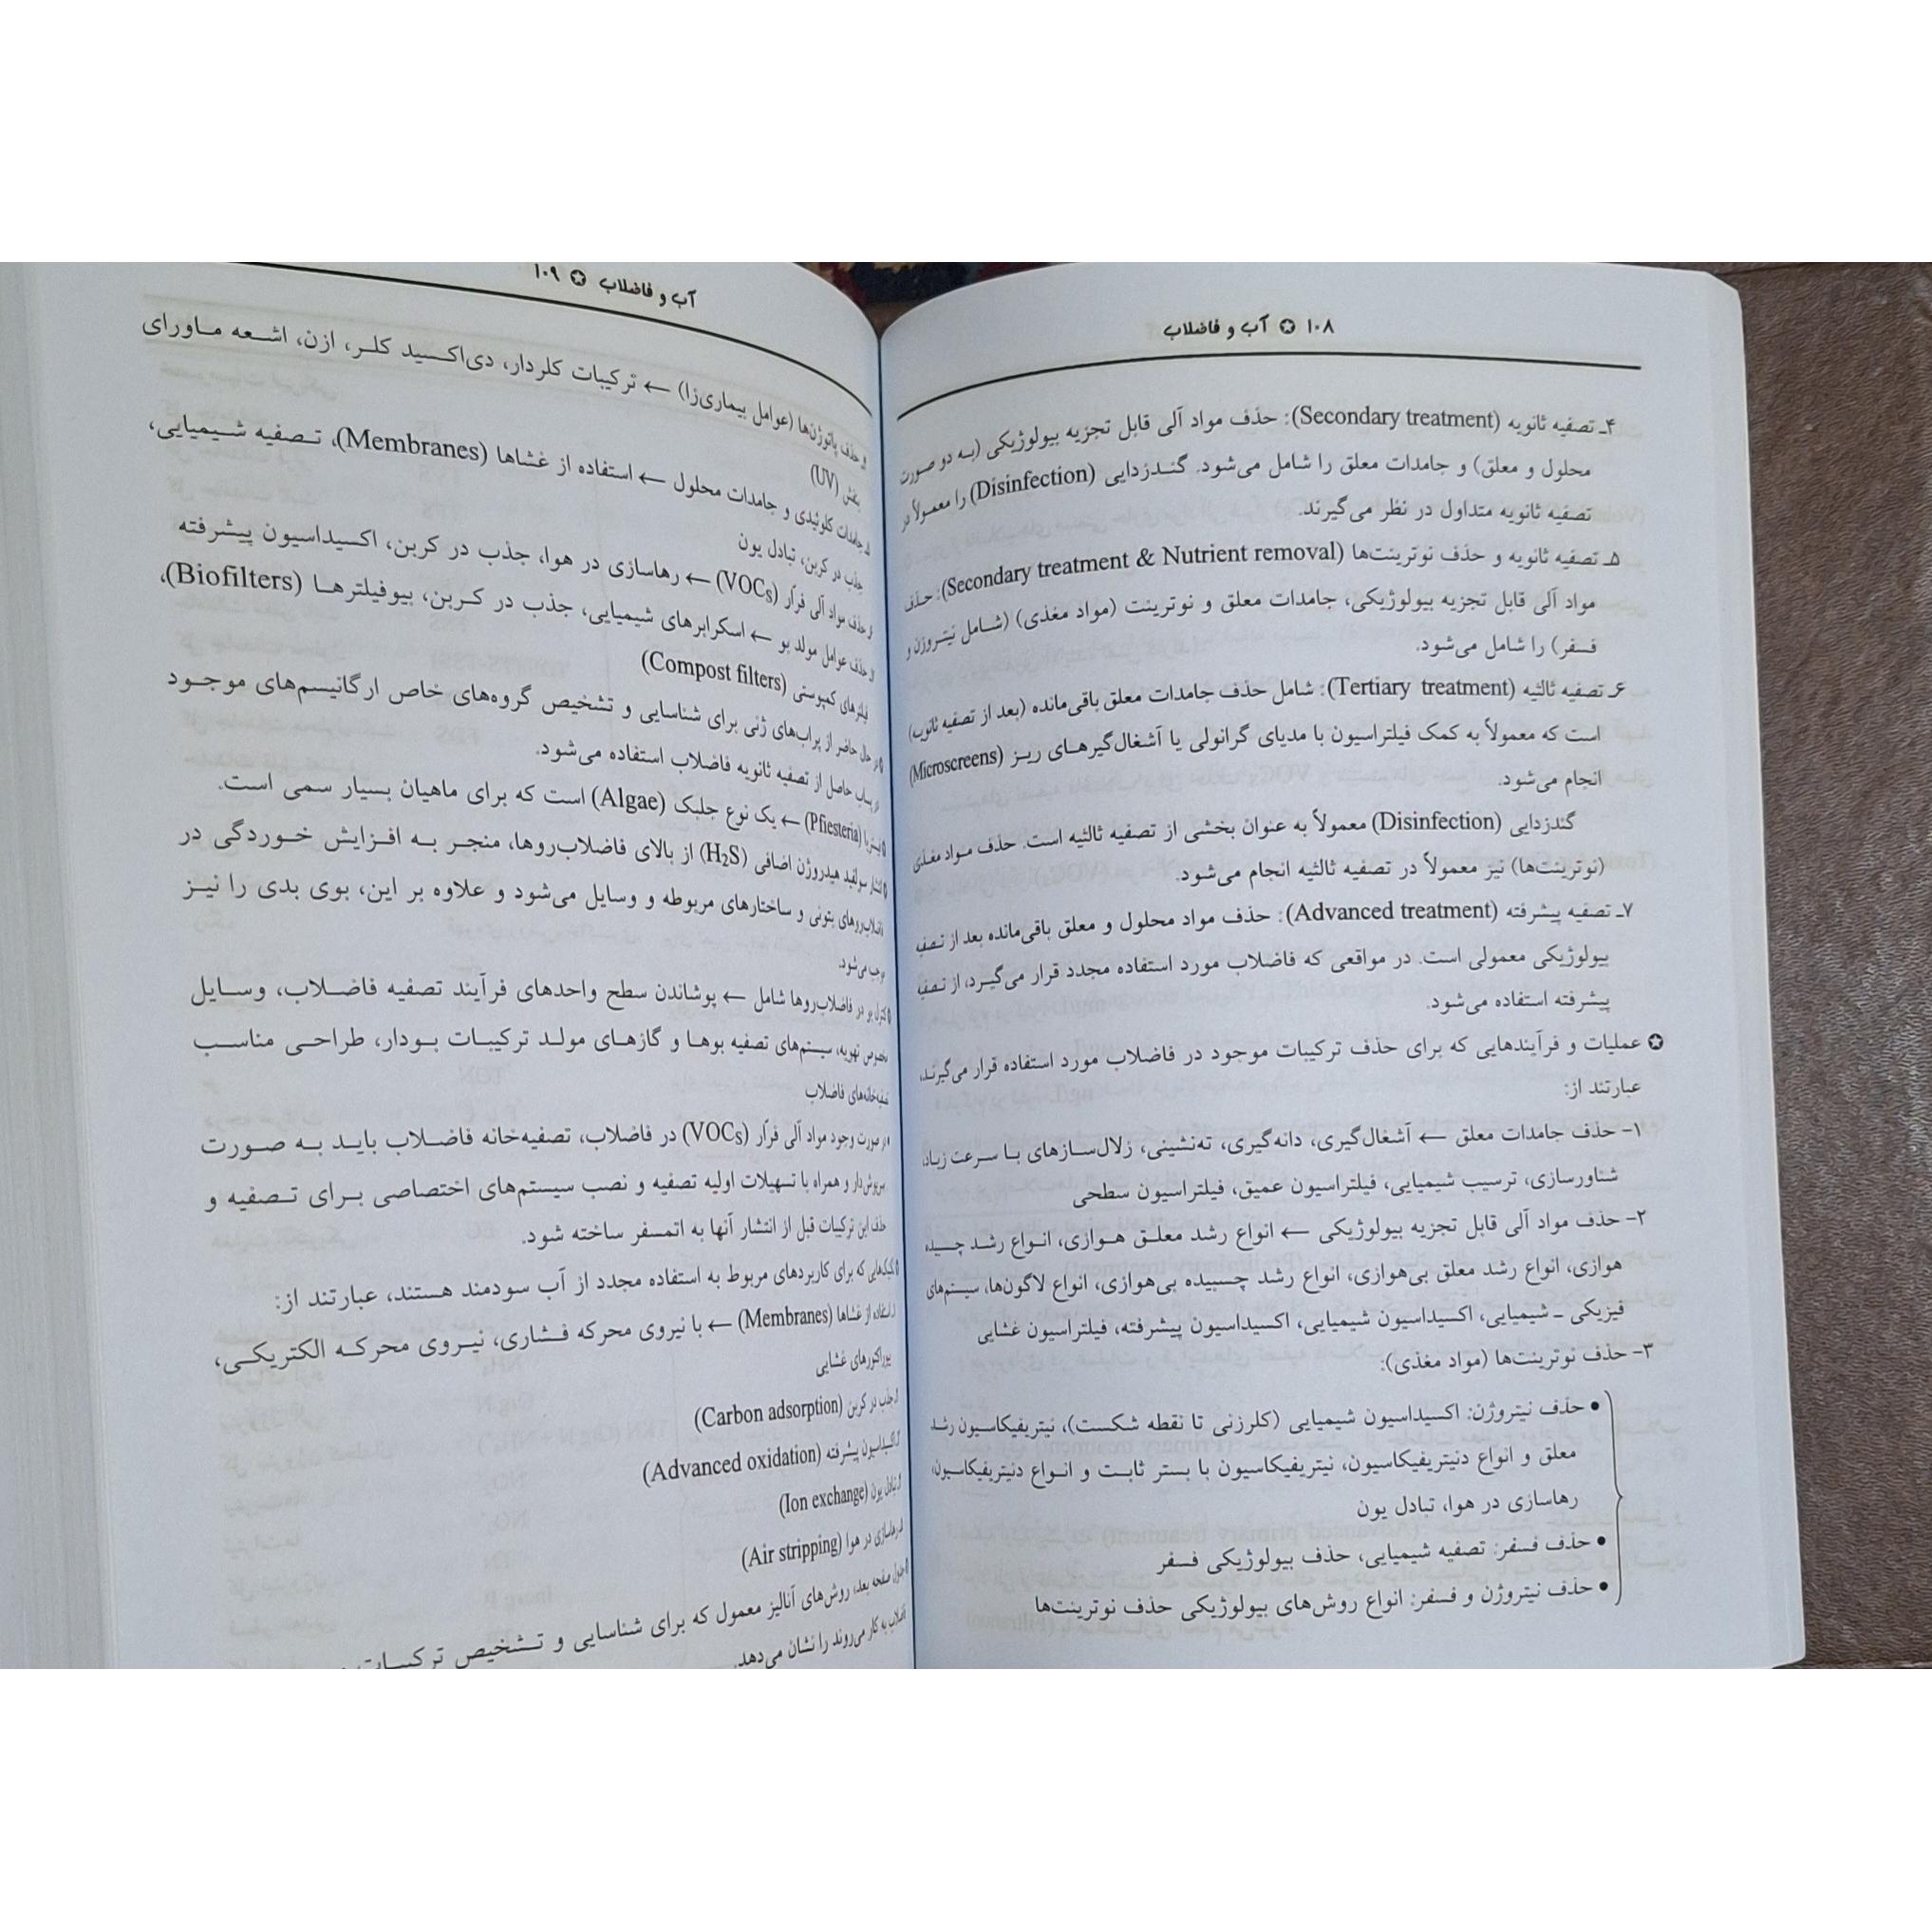 ۱۰۸ ✪ آب و فاضلاب
۴ـ تصفیه ثانویه (Secondary treatment): حذف مواد آلی قابل تجزیه بیولوژیکی (به دو صورت
محلول و معلق) و جامدات معلق را شامل می‌شود. گندزدایی (Disinfection) را معمولاً در
تصفیه ثانویه متداول در نظر می‌گیرند.
۵ـ تصفیه ثانویه و حذف نوترینت‌ها (Secondary treatment & Nutrient removal): حذف
مواد آلی قابل تجزیه بیولوژیکی، جامدات معلق و نوترینت (مواد مغذی) (شامل نیتروژن و
فسفر) را شامل می‌شود.
۶ـ تصفیه ثالثیه (Tertiary treatment): شامل حذف جامدات معلق باقی‌مانده (بعد از تصفیه ثانویه)
است که معمولاً به کمک فیلتراسیون با مدیای گرانولی یا آشغال‌گیرهای ریز (Microscreens)
انجام می‌شود.
گندزدایی (Disinfection) معمولاً به عنوان بخشی از تصفیه ثالثیه است. حذف مواد مغذی
(نوترینت‌ها) نیز معمولاً در تصفیه ثالثیه انجام می‌شود.
۷ـ تصفیه پیشرفته (Advanced treatment): حذف مواد محلول و معلق باقی‌مانده بعد از تصفیه
بیولوژیکی معمولی است. در مواقعی که فاضلاب مورد استفاده مجدد قرار می‌گیرد، از تصفیه
پیشرفته استفاده می‌شود.
✪ عملیات و فرآیندهایی که برای حذف ترکیبات موجود در فاضلاب مورد استفاده قرار می‌گیرند،
عبارتند از:
۱- حذف جامدات معلق ← آشغال‌گیری، دانه‌گیری، ته‌نشینی، زلال‌سازهای با سرعت زیاد،
شناورسازی، ترسیب شیمیایی، فیلتراسیون عمیق، فیلتراسیون سطحی
۲- حذف مواد آلی قابل تجزیه بیولوژیکی ← انواع رشد معلق هوازی، انواع رشد چسبیده
هوازی، انواع رشد معلق بی‌هوازی، انواع رشد چسبیده بی‌هوازی، انواع لاگون‌ها، سیستم‌های
فیزیکی ـ شیمیایی، اکسیداسیون شیمیایی، اکسیداسیون پیشرفته، فیلتراسیون غشایی
۳- حذف نوترینت‌ها (مواد مغذی):
● حذف نیتروژن: اکسیداسیون شیمیایی (کلرزنی تا نقطه شکست)، نیتریفیکاسیون رشد
معلق و انواع دنیتریفیکاسیون، نیتریفیکاسیون با بستر ثابت و انواع دنیتریفیکاسیون،
رهاسازی در هوا، تبادل یون
● حذف فسفر: تصفیه شیمیایی، حذف بیولوژیکی فسفر
● حذف نیتروژن و فسفر: انواع روش‌های بیولوژیکی حذف نوترینت‌ها
آب و فاضلاب ✪ ۱۰۹
حذف پاتوژن‌ها (عوامل بیماری‌زا) ← ترکیبات کلردار، دی‌اکسید کلر، ازن، اشعه ماورای
بنفش (UV)
جامدات کلوئیدی و جامدات محلول ← استفاده از غشاها (Membranes)، تصفیه شیمیایی،
جذب در کربن، تبادل یون
حذف مواد آلی فرّار (VOCs) ← رهاسازی در هوا، جذب در کربن، اکسیداسیون پیشرفته
حذف عوامل مولد بو ← اسکرابرهای شیمیایی، جذب در کربن، بیوفیلترها (Biofilters)،
فیلترهای کمپوستی (Compost filters)
در حال حاضر از پراب‌های ژنی برای شناسایی و تشخیص گروه‌های خاص ارگانیسم‌های موجود
در پساب حاصل از تصفیه ثانویه فاضلاب استفاده می‌شود.
(Pfiesteria) ← یک نوع جلبک (Algae) است که برای ماهیان بسیار سمی است.
انتشار سولفید هیدروژن اضافی (H₂S) از بالای فاضلاب‌روها، منجر به افزایش خوردگی در
فاضلاب‌روهای بتونی و ساختارهای مربوطه و وسایل می‌شود و علاوه بر این، بوی بدی را نیز
موجب می‌شود.
کنترل بو در فاضلاب‌روها شامل ← پوشاندن سطح واحدهای فرآیند تصفیه فاضلاب، وسایل
مخصوص تهویه، سیستم‌های تصفیه بوها و گازهای مولد ترکیبات بودار، طراحی مناسب
تصفیه‌خانه‌های فاضلاب
در صورت وجود مواد آلی فرّار (VOCs) در فاضلاب، تصفیه‌خانه فاضلاب باید به صورت
سرپوش‌دار و همراه با تسهیلات اولیه تصفیه و نصب سیستم‌های اختصاصی برای تصفیه و
حذف این ترکیبات قبل از انتشار آنها به اتمسفر ساخته شود.
تکنیک‌هایی که برای کاربردهای مربوط به استفاده مجدد از آب سودمند هستند، عبارتند از:
استفاده از غشاها (Membranes) ← با نیروی محرکه فشاری، نیروی محرکه الکتریکی،
بیوراکتورهای غشایی
جذب در کربن (Carbon adsorption)
اکسیداسیون پیشرفته (Advanced oxidation)
تبادل یون (Ion exchange)
رهاسازی در هوا (Air stripping)
جدول صفحه بعد، روش‌های آنالیز معمول که برای شناسایی و تشخیص ترکیبات
فاضلاب به کار می‌روند را نشان می‌دهد.